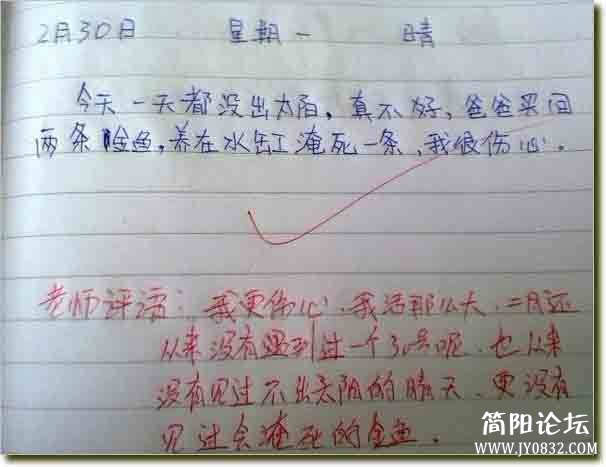 2月30日 星期一 晴
今天一天都没出太阳,真不好,爸爸买回
两条金鱼,养在水缸淹死一条,我很伤心。
老师评语:我更伤心,我活那么大,二月还
从来没有遇到过一个30号呢,也从来
没有见过不出太阳的晴天,更没有
见过会淹死的金鱼。
简阳论坛
www.JY0832.com